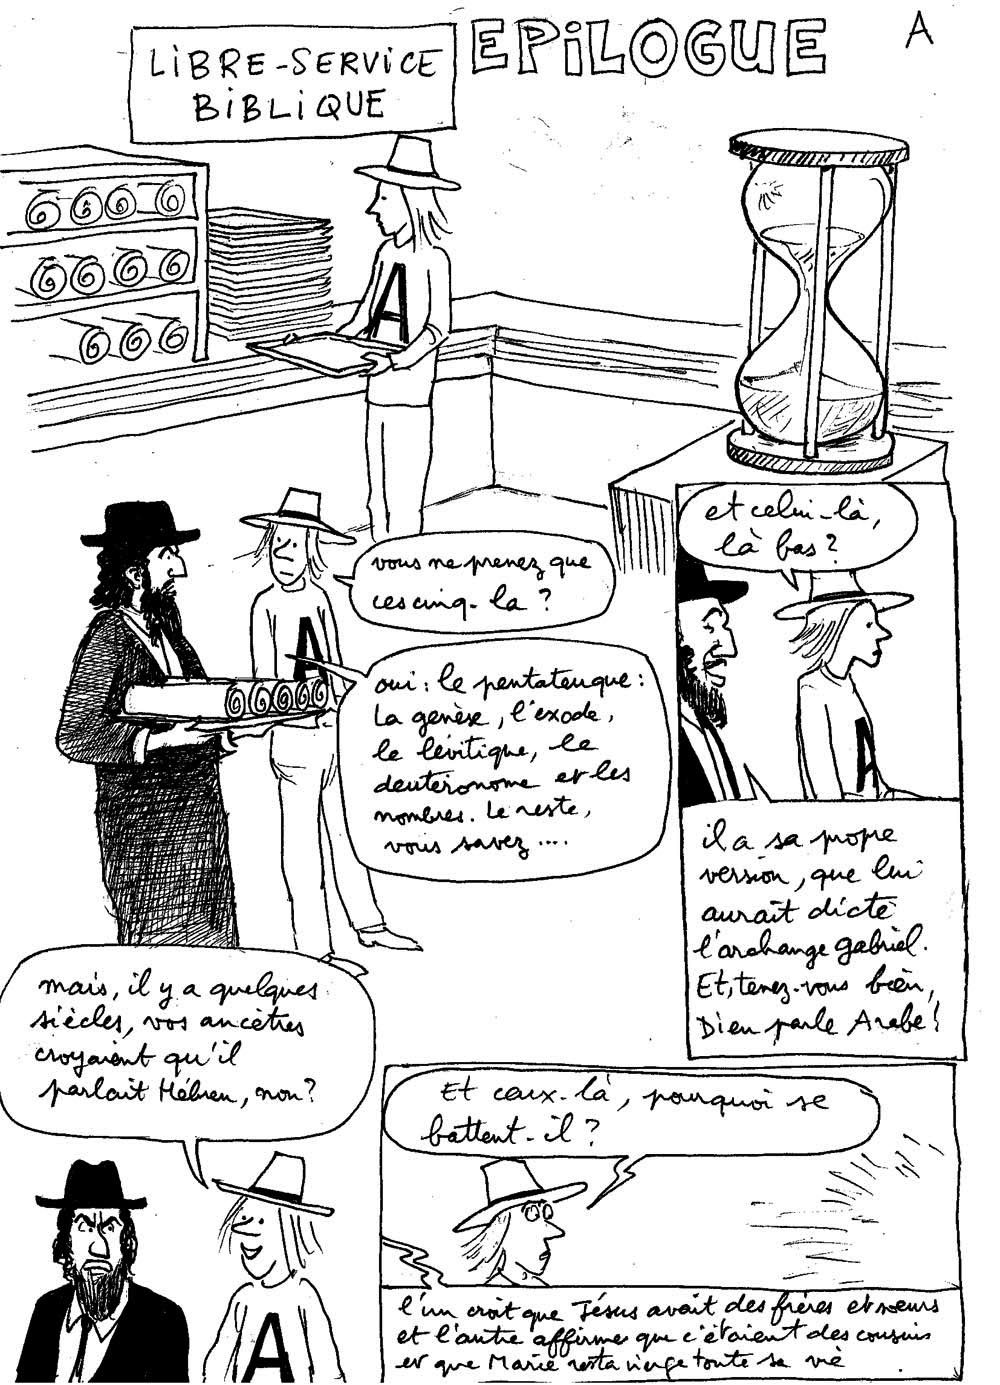 LiBRE-SERViCE
BiBLiQUE
EPiLOGUE
A
A
vous ne prenez que
ces cinq-la ?
A
oui : le pentateuque :
La genèse, l'exode,
le lévitique, le
deutéronome et les
nombres. Le reste,
vous savez ....
et celui-là,
là bas ?
A
il a sa propre
version, que lui
aurait dicté
l'archange gabriel.
Et, tenez-vous bien,
Dieu parle Arabe !
mais, il y a quelques
siècles, vos ancêtres
croyaient qu'il
parlait Hébreu, non ?
A
Et ceux-là, pourquoi se
battent-il ?
l'un croit que Jésus avait des frères et soeurs
et l'autre affirme que c'étaient des cousins
et que Marie resta vierge toute sa vie